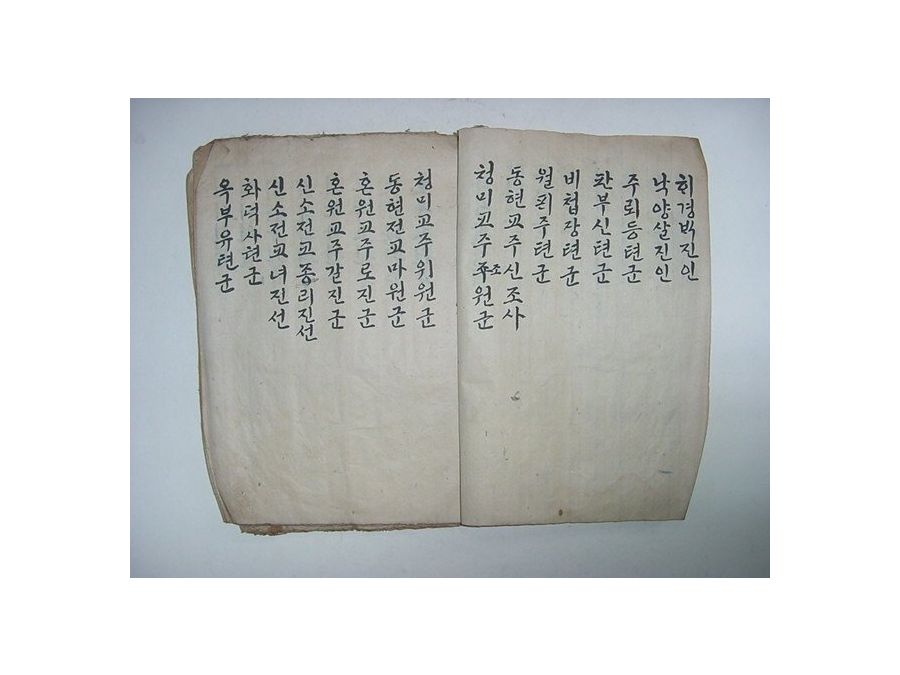 희경박진인
낙양살진인
주뢰등텬군
판부신텬군
비첩장텬군
월푀주텬군
동현교주신조사
쳥미교주조원군
쳥미교주위원군
동현전교마원군
혼원교주로진군
혼원교주갈진군
신소전교종리진선
신소전교녀진선
화덕사텬군
옥부유텬군